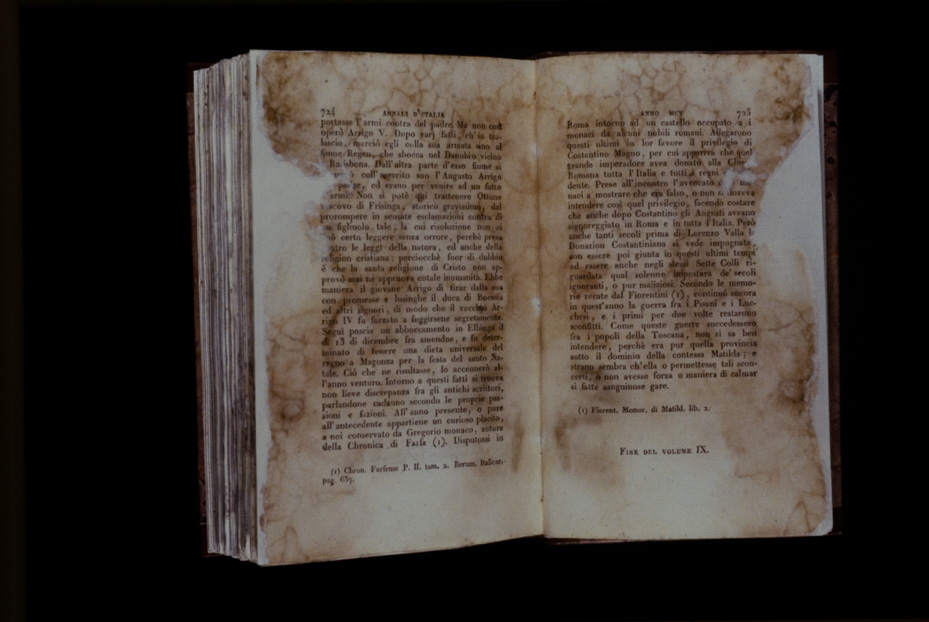 724 ANNALI D'ITALIA
portasse l'armi contra del padre. Ma non così
operò Arrigo V. Dopo varj fatti, ch'io tra-
lascio, marciò egli colla sua armata sino al
fiume Regen, che sbocca nel Danubio vicino
Ratisbona. Dall'altra parte d'esso fiume si
coll'esercito suo l'Augusto Arrigo
padre, ed erano per venire ad un fatto
armi. Non si potè qui trattenere Ottone
scovo di Frisinga, storico gravissimo, dal
prorompere in sensate esclamazioni contra di
un figliuolo tale, la cui risoluzione non si
può certo leggere senza orrore, perchè presa
contro le leggi della natura, ed anche della
religion cristiana: perciocchè fuor di dubbio
è che la santa religione di Cristo non ap-
provò mai nè approva cotale inumanità. Ebbe
maniera il giovane Arrigo di tirar dalla sua
con promesse e lusinghe il duca di Boemia
ed altri signori, di modo che il vecchio Ar-
rigo IV fu forzato a fuggirsene segretamente.
Seguì poscia un abboccamento in Elbinga il
dì 13 di dicembre fra amendue, e fu deter-
minato di tenere una dieta universale del
regno a Magonza per la festa del santo Na-
tale. Ciò che ne risultasse, lo accennerò al-
l'anno venturo. Intorno a questi fatti si truova
non lieve discrepanza fra gli antichi scrittori,
parlandone cadauno secondo le proprie pas-
sioni e fazioni. All'anno presente, o pure
all'antecedente appartiene un curioso placito,
a noi conservato da Gregorio monaco, autore
della Chronica di Farfa (1). Disputossi in
(1) Chron. Farfense P. II. tom. 2. Rerum. Italicar.
pag. 637.
ANNO MCV 725
Roma intorno ad un castello occupato a i
monaci da alcuni nobili romani. Allegarono
questi ultimi in lor favore il privilegio di
Costantino Magno, per cui appariva che quel
grande imperadore avea donato alla Chie
Romana tutta l'Italia e tutti i regni
dente. Prese all'incontro l'avvocato
naci a mostrare che era falso, o non si doveva
intendere così quel privilegio, facendo costare
che anche dopo Costantino gli Augusti aveano
signoreggiato in Roma e in tutta l'Italia. Però
anche tanti secoli prima di Lorenzo Valla la
Donazion Costantiniana si vede impugnata,
con essere poi giunta in questi ultimi tempi
ad essere anche negli stessi Sette Colli ri-
guardata qual solenne impostura de' secoli
ignoranti, o pur maliziosi. Secondo le memo-
rie recate dal Fiorentini (1), continuò ancora
in quest'anno la guerra fra i Pisani e i Luc-
chesi, e i primi per due volte restarono
sconfitti. Come queste guerre succedessero
fra i popoli della Toscana, non si sa ben
intendere, perchè era pur quella provincia
sotto il dominio della contessa Matilda; e
strano sembra ch'ella o permettesse tali scon-
certi, o non avesse forza o maniera di calmar
sì fatte sanguinose gare.
(1) Fiorent. Memor. di Matild. lib. 2.
FINE DEL VOLUME IX.